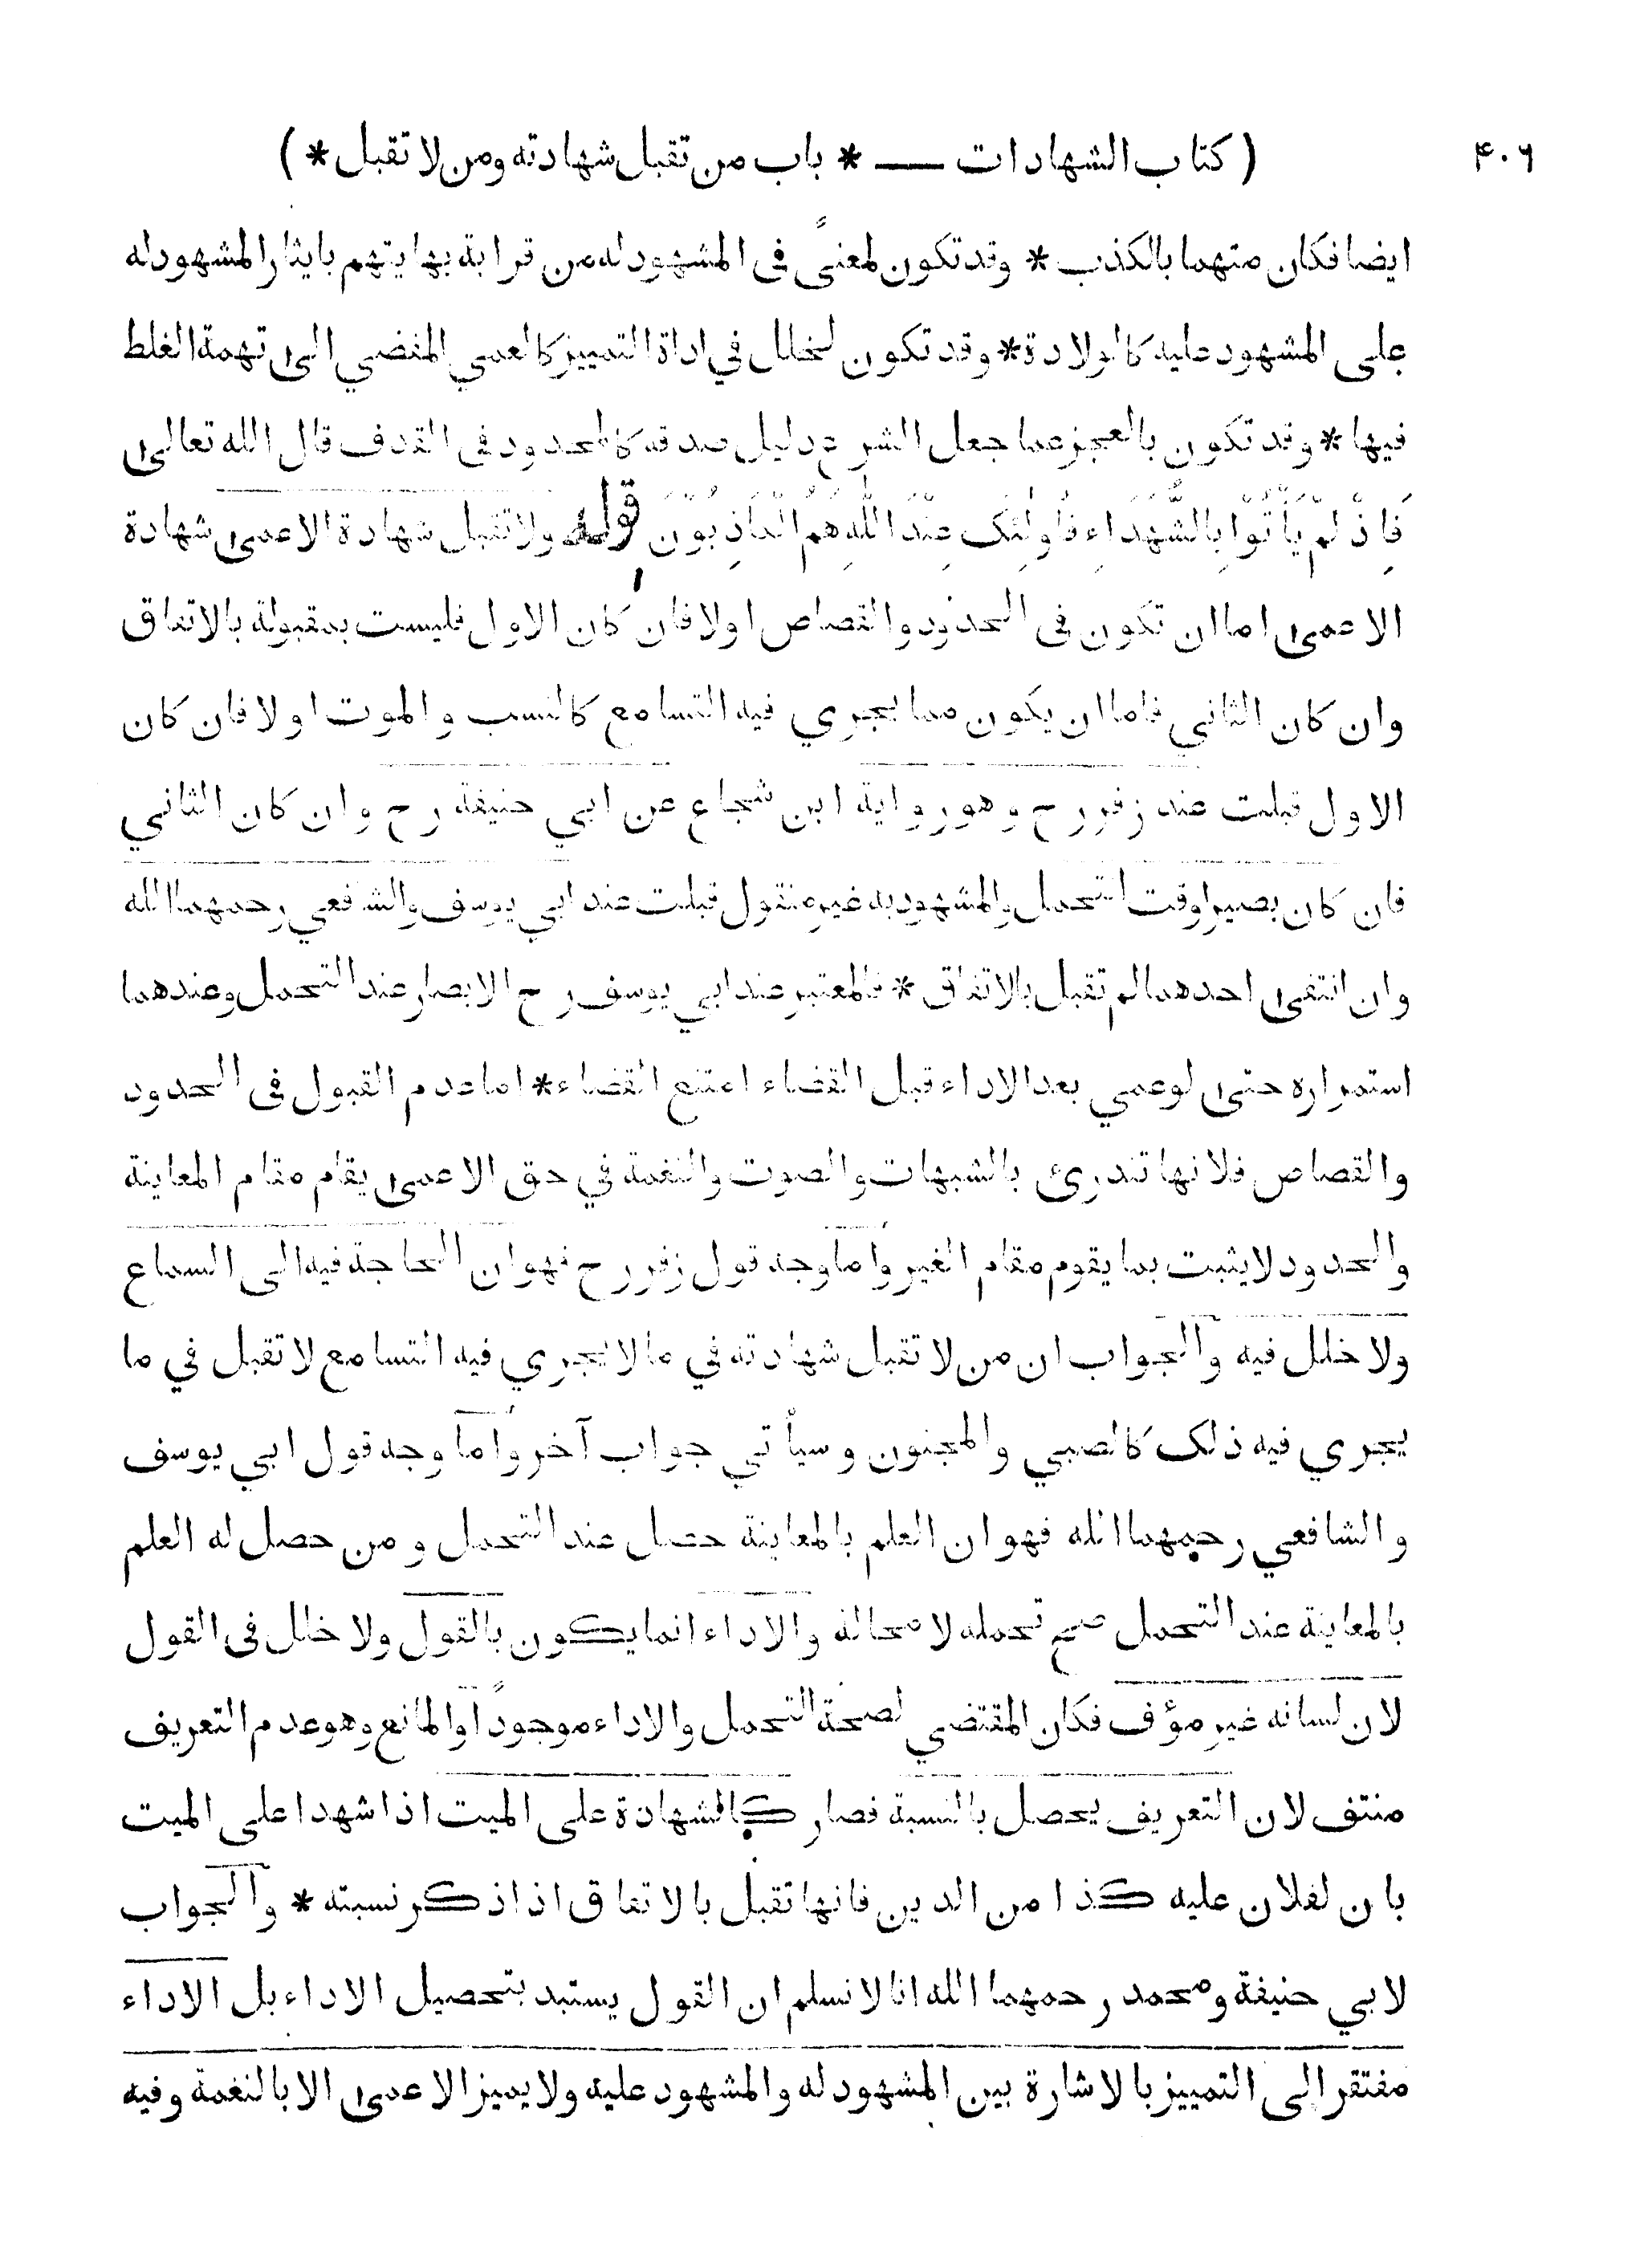 ( كتاب الشهادات — * باب من تقبل شهادته ومن لا تقبل * ) ۴۰۶
ايضا فكان متهما بالكذب * وقد تكون لمعنىً فى المشهود له من قرابة بها يتهم بايثار المشهود له
على المشهود عليه كالولادة * وقد تكون لخلل في اداة التمييز كالعمي المفضي الى تهمة الغلط
فيها * وقد تكون بالعجز عما جعل الشرع دليل صدقه كالمحدود فى القذف قال الله تعالى
فَاِذْ لَمْ يَأْتُوْا بِالشُّهَدَاءِ فَاُولٰئِكَ عِنْدَ اللّٰهِ هُمُ الْكَاذِبُوْنَ قوله ولا تقبل شهادة الاعمى شهادة
الاعمى اما ان تكون فى الحدود والقصاص اولا فان كان الاول فليست بمقبولة بالاتفاق
وان كان الثاني فاما ان يكون مما يجري فيه التسامع كالنسب والموت اولا فان كان
الاول قبلت عند زفر رح وهو رواية ابن شجاع عن ابي حنيفة رح وان كان الثاني
فان كان بصيرا وقت التحمل والمشهود به غير منقول قبلت عند ابي يوسف والشافعي رحمهما الله
وان انتفى احدهما لم تقبل بالاتفاق * فالمعتبر عند ابي يوسف رح الابصار عند التحمل وعندهما
استمراره حتى لوعمي بعد الاداء قبل القضاء امتنع القضاء * اما عدم القبول فى الحدود
والقصاص فلانها تندرئ بالشبهات والصوت والنغمة في حق الاعمى يقام مقام المعاينة
والحدود لا يثبت بما يقوم مقام الغير واما وجه قول زفر رح فهو ان الحاجة فيه الى السماع
ولا خلل فيه والجواب ان من لا تقبل شهادته في ما لا يجري فيه التسامع لا تقبل في ما
يجري فيه ذلك كالصبي والمجنون وسيأتي جواب آخر واما وجه قول ابي يوسف
والشافعي رحمهما الله فهو ان العلم بالمعاينة حصل عند التحمل ومن حصل له العلم
بالمعاينة عند التحمل صح تحمله لا محالة والاداء انما يكون بالقول ولا خلل فى القول
لان لسانه غير مؤف فكان المقتضي لصحة التحمل والاداء موجودًا والمانع وهو عدم التعريف
منتف لان التعريف يحصل بالنسبة فصار كالشهادة على الميت اذا شهدا على الميت
بان لفلان عليه كذا من الدين فانها تقبل بالاتفاق اذا ذكر نسبته * والجواب
لابي حنيفة ومحمد رحمهما الله انا لا نسلم ان القول يستبد بتحصيل الاداء بل الاداء
مفتقر الى التمييز بالاشارة بين المشهود له والمشهود عليه ولا يميز الاعمى الا بالنغمة وفيه